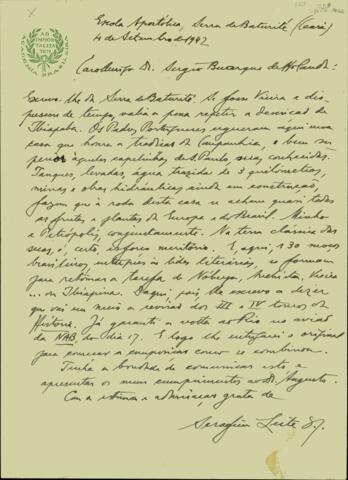 AD IMMORTALITATEM
ACADEMIA BRASILEIRA
Escola Apostólica, Serra de Baturité (Ceará)
4 de Setembro de 1942
Caro Amigo Dr. Sergio Buarque de Hollanda:
Escrevo-lhe da Serra de Baturité. Se fosse Vieira e dis-
pusesse de tempo, valia a pena repetir a descrição da
Ibiapaba. Os Padres Portugueses ergueram aqui uma
casa que honra a tradição da Companhia, e bem su-
perior àquelas capelinhas, de S. Paulo, suas conhecidas.
Tanques, levadas, água trazida de 3 quilometros,
minas e obras hidráulicas ainda em construcção,
fazem que à roda desta casa se achem quasi todas
as frutas e plantas da Europa e do Brasil. Minho
e Petrópolis, conjuntamente. Na terra classica das
secas, é, certo, esforço meritório. E aqui, 130 moços
brasileiros, entregues às lides literárias, se formam
para retomar a tarefa de Nobrega, Anchieta, Vieira
... ou Ibiapina. Daqui, pois, lhe escrevo a dizer
que vai em meio a revisão dos III e IV tomos da
História. Já garanti a volta ao Rio no avião
da NAB, do dia 17. E logo lhe entregarei o original
para começar a composição como se combinou.
Tenha a bondade de comunicar isto e
apresentar os meus cumprimentos ao Dr. Augusto.
Com a estima e admiração grata de
Serafim Leite S. J.